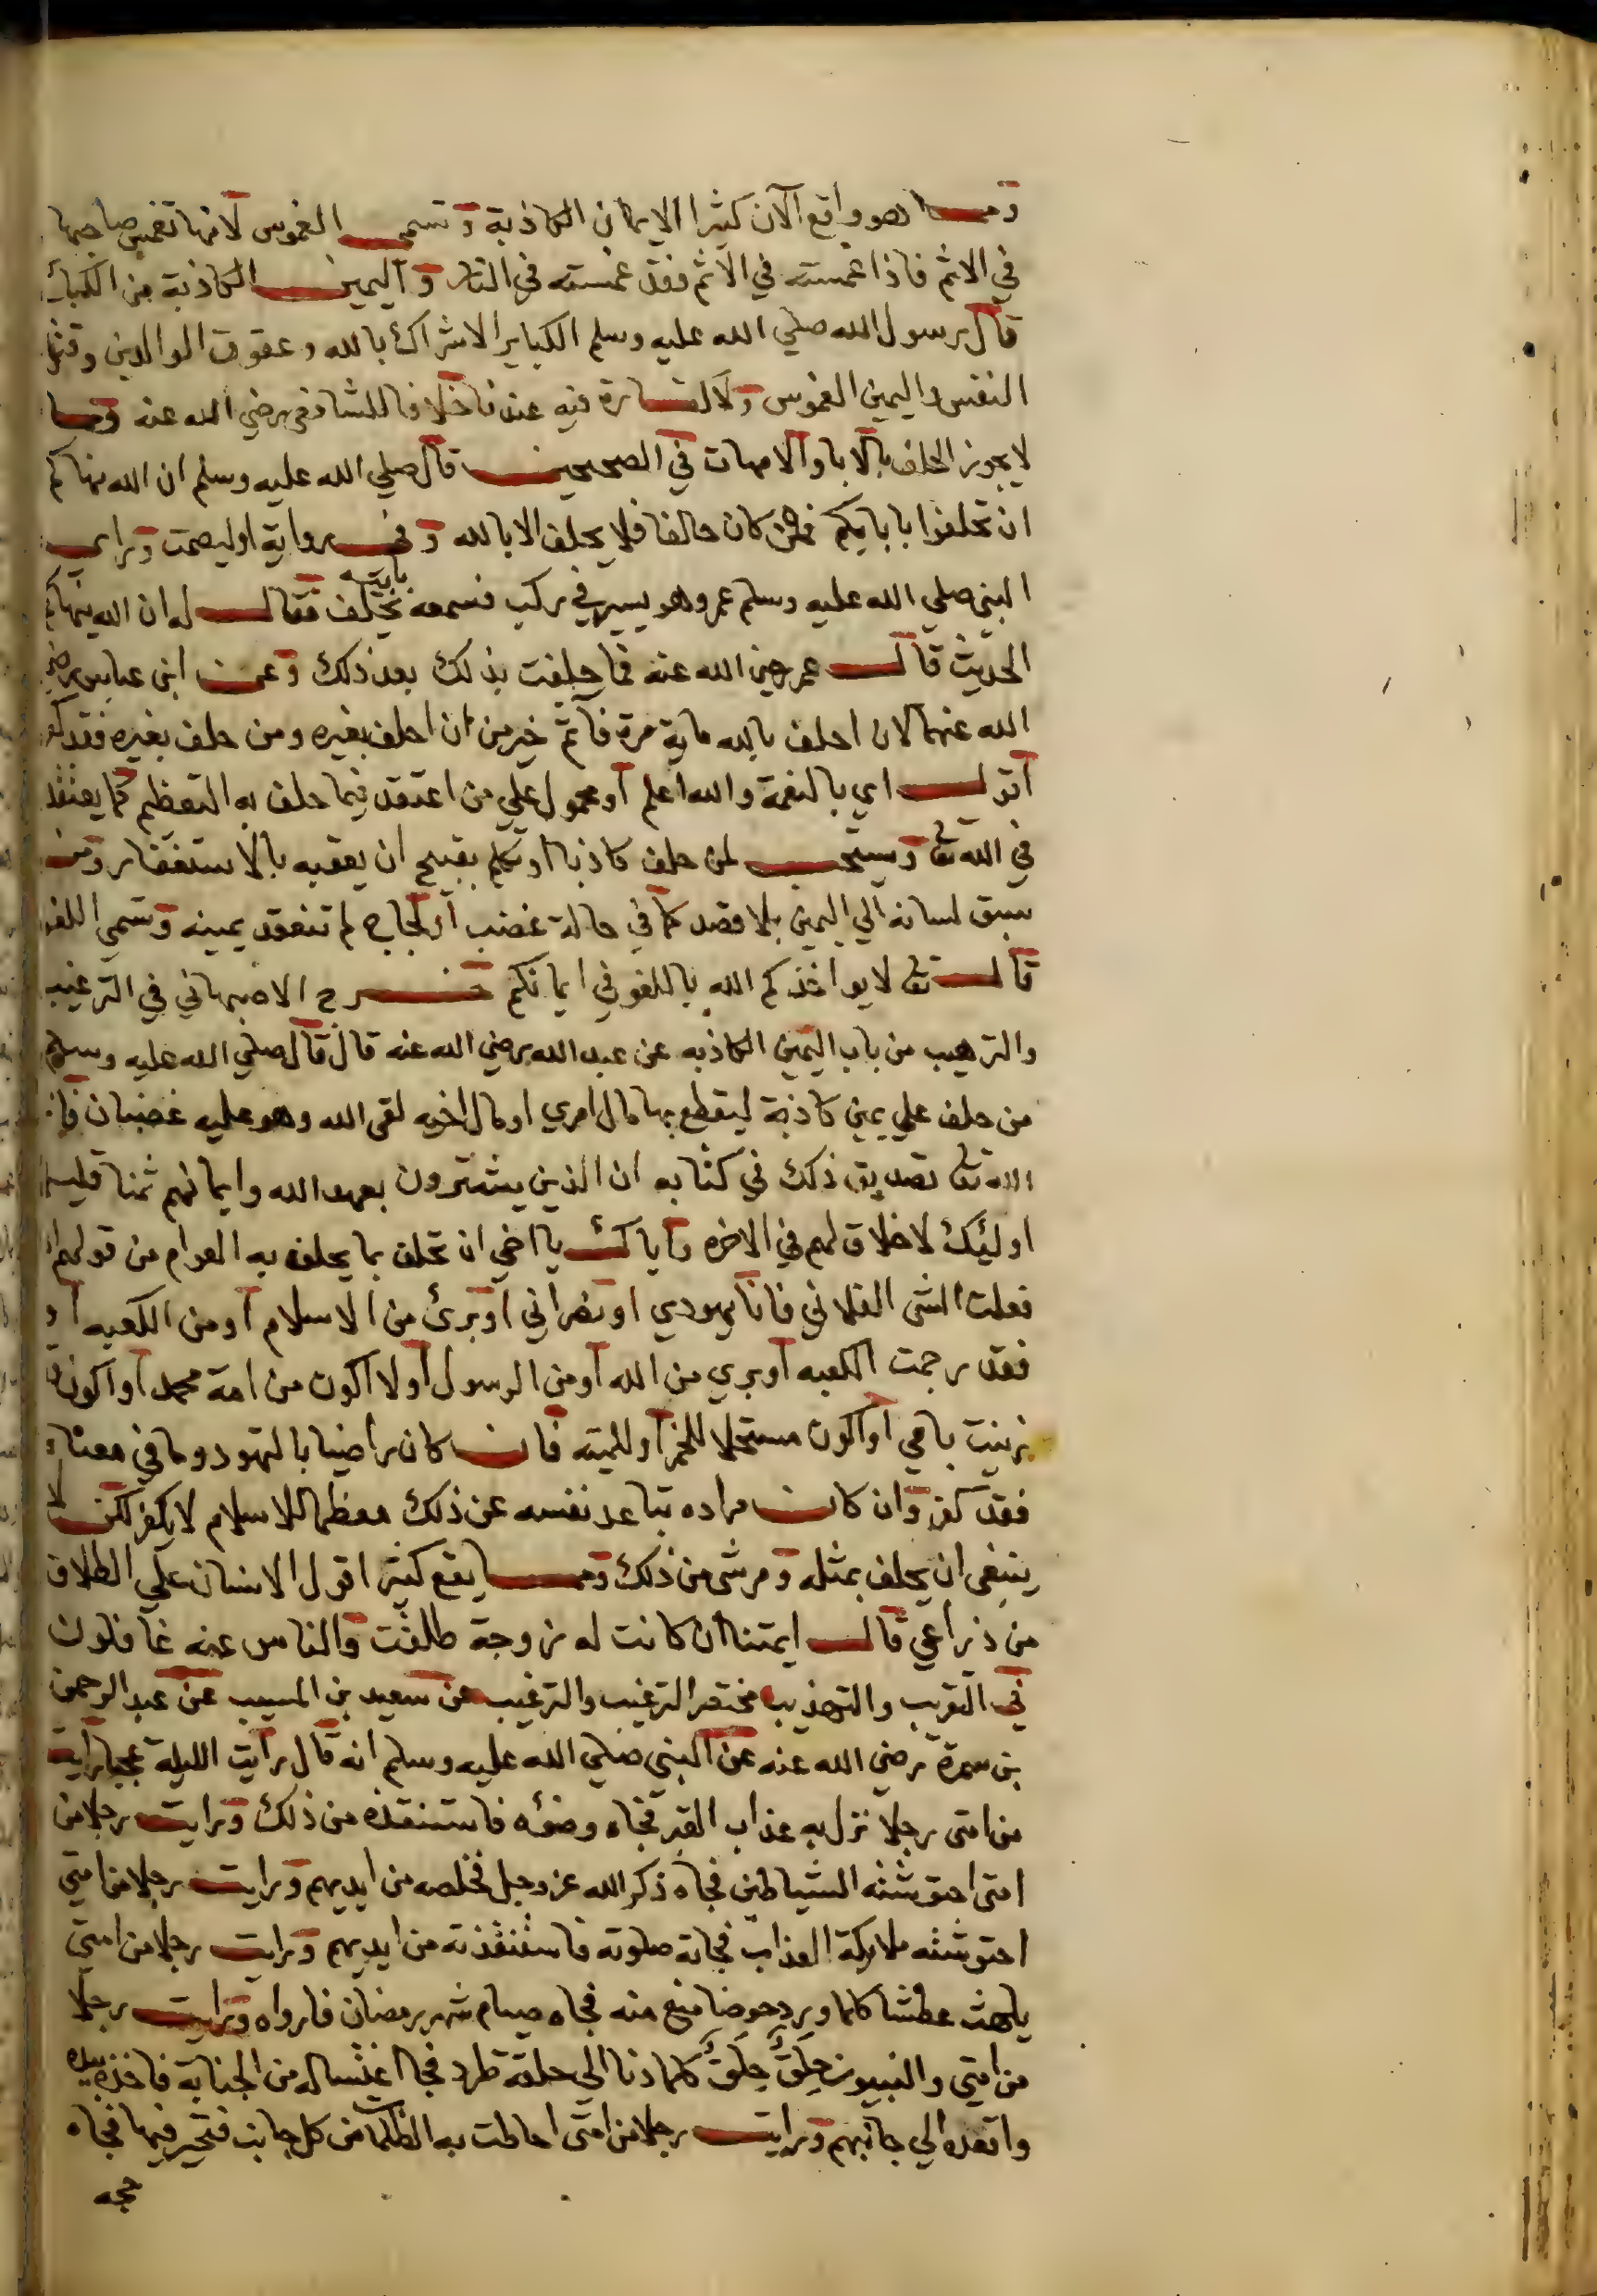 ومما هو واقع الآن كثيرا الايمان الكاذبة وتسمى الغموس لانها تغمس صاحبها
في الاثم فاذا غمسته في الاثم فقد غمسته في النار واليمين الكاذبة من الكبائر
قال رسول الله صلي الله عليه وسلم الكباير الاشراك بالله وعقوق الوالدين وقتل
النفس واليمين الغموس ولا كفارة فيه عندنا خلافا للشافعي رضي الله عنه ومما
لا يجوز الحلف بالابا والامهات في الصحيحين قال صلي الله عليه وسلم ان الله ينهاكم
ان تحلفوا بابايكم فمن كان حالفا فلا يحلف الا بالله وفي رواية او ليصمت وراي
النبي صلي الله عليه وسلم عمر وهو يسير في ركب فسمعه يحلف بابيه فقال له ان الله ينهاكم
الحديث قال عمر رضي الله عنه فما حلفت بذلك بعد ذلك وعن ابن عباس رضي
الله عنهما لان احلف بالله ماية مرة فآثم خير من ان احلف بغيره ومن حلف بغيره فقد كفر
اقول اي بالنعمة والله اعلم او محمول علي من اعتقد فيما حلف به التعظيم كما يعتقد
في الله تع ويستحب لمن حلف كاذبا او تكلم بقبيح ان يعقبه بالاستغفار ومن
سبق لسانه الي اليمين بلا قصد كما في حالة غضب او لجاج لم تنعقد يمينه وتسمي اللغو
قال تع لا يواخذكم الله باللغو في ايمانكم خرج الاصبهاني في الترغيب
والترهيب من باب اليمين الكاذبه عن عبد الله رضي الله عنه قال قال صلي الله عليه وسلم
من حلف علي يمين كاذبة ليقطع بها مال امري او مال اخيه لقى الله وهو عليه غضبان فانزل
الله تع تصديق ذلك في كتابه ان الذين يشترون بعهد الله وايمانهم ثمنا قليلا
اوليك لا خلاق لهم في الاخره واياك يا اخي ان تحلف بما يحلف به العوام من قولهم ان
فعلت الشى الفلاني فانا يهودي او نصراني او برئ من الاسلام او من الكعبه او
فقد رجمت الكعبه او بري من الله او من الرسول او لا اكون من امة محمد او اكون
زنيت بامي او اكون مستحلا للخمر او للميته فان كان راضيا بالتهود وما في معناه
فقد كفر وان كان مراده تباعد نفسه عن ذلك معظما للاسلام لا يكفر لكن لا
ينبغى ان يحلف بمثله ومر شى من ذلك ومما يقع كثيرا قول الانسان علي الطلاق
من ذراعي قال ايمتنا ان كانت له زوجة طلقت والناس عنه غافلون
في التقريب والتهذيب مختصر الترغيب والترغيب عن سعيد بن المسيب عن عبد الرحمن
بن سمرة رضي الله عنه عن النبي صلي الله عليه وسلم انه قال رايت الليلة عجبا رايت
من امتى رجلا نزل به عذاب القبر فجاه وضوه فاستنقذه من ذلك ورايت رجلا من
امتى احتوشته الشياطين فجاه ذكر الله عز وجل فخلصه من ايديهم ورايت رجلا من امتي
احتوشته ملايكة العذاب فجاته صلوته فاستنقذته من ايديهم ورايت رجلا من امتي
يلهث عطشا كلما ورد حوضا منع منه فجاه صيام شهر رمضان فارواه ورايت رجلا
من امتي والنبيون حلق حلق كلما دنا الي حلقة طرد فجا اغتساله من الجنابة فاخذه بيده
واقعده الي جانبهم ورايت رجلا من امتى احاطت به الظلمات من كل جانب فتحير فيها فجاه
حجه